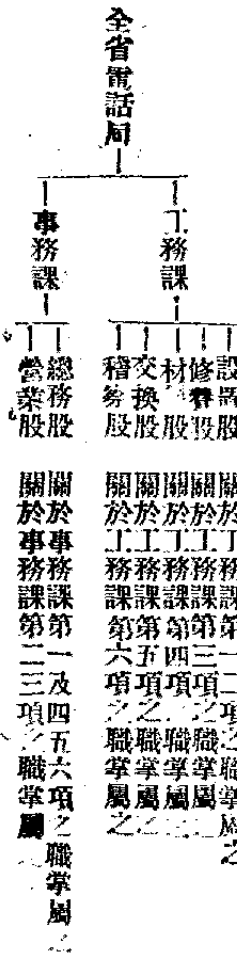 全省電話局
工務課
設置股 關於工務課第一二項之職掌屬之
修養股 關於工務課第三項之職掌屬之
材料股 關於工務課第四項之職掌屬之
交換股 關於工務課第五項之職掌屬之
稽務股 關於工務課第六項之職掌屬之
事務課
總務股 關於事務課第一及四五六項之職掌屬之
營業股 關於事務課第二三項之職掌屬之